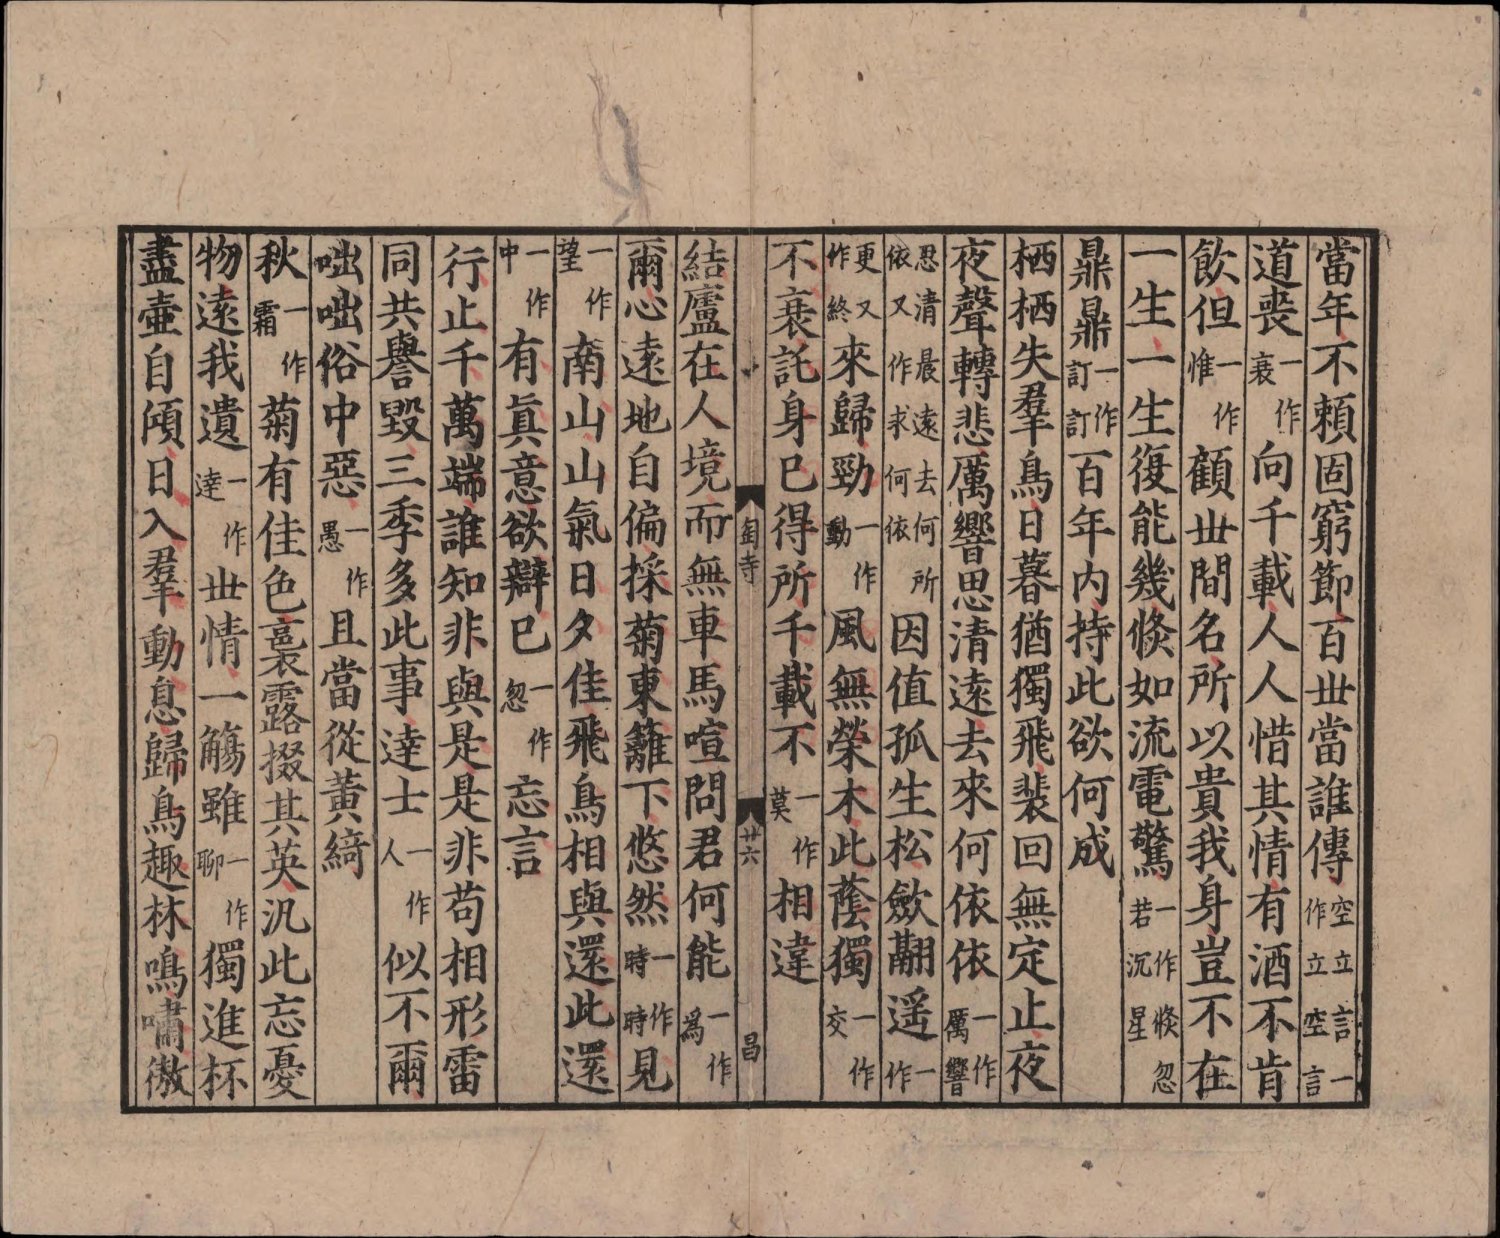 當年不賴固窮節百世當誰傳空立言一作立空言
道喪一作衰向千載人人惜其情有酒不肯
飲但一作惟顧世間名所以貴我身豈不在
一生一生復能幾倐如流電驚一作倐忽若沉星
鼎鼎一作訂訂百年内持此欲何成
栖栖失羣鳥日暮猶獨飛裴回無定止夜
夜聲轉悲厲響思清遠去來何依依一作厲響
思清晨遠去何所依又作求何依因值孤生松歛翮遥一作
更又又作終來歸勁一作動風無榮木此蔭獨一作交
不衰託身已得所千載不一作莫相違
匋寺
廿六
昌
結廬在人境而無車馬喧問君何能一作爲
爾心遠地自偏採菊東籬下悠然一作時時見
一作望南山山氣日夕佳飛鳥相與還此還
一作中有眞意欲辯已一作忽忘言
行止千萬端誰知非與是是非苟相形雷
同共譽毀三季多此事達士一作人似不爾
咄咄俗中惡一作愚且當從黃綺
秋一作霜菊有佳色裛露掇其英汎此忘憂
物遠我遺一作達世情一觴雖一作聊獨進杯
盡壷自傾日入羣動息歸鳥趣林鳴嘯傲